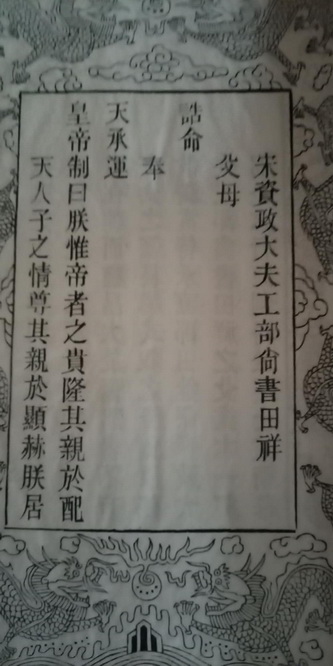 宋資政大夫工部尙書田祥
父母
誥命
奉
天承運
皇帝制曰朕惟帝者之貴隆其親於配
天人子之情尊其親於顯赫朕居